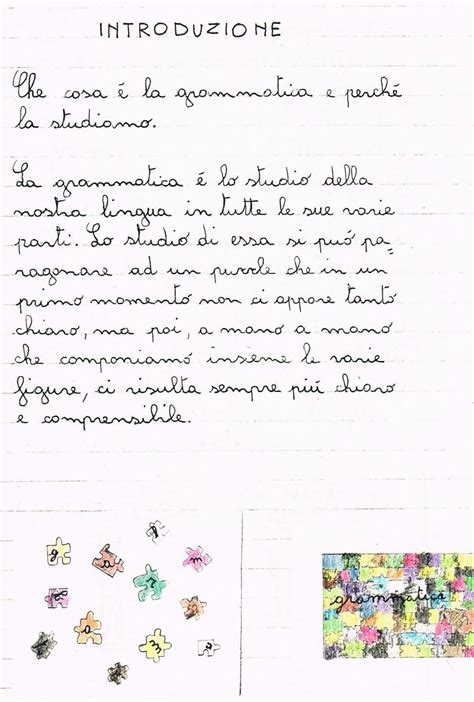 INTRODUZIONE
Che cosa é la grammatica e perché
la studiamo.
La grammatica é lo studio della
nostra lingua in tutte le sue varie
parti. Lo studio di essa si puó pa=
ragonare ad un puzzle che in un
primo momento non ci appare tanto
chiaro, ma poi, a mano a mano
che componiamo insieme le varie
figure, ci risulta sempre piú chiaro
e comprensibile.
g
a
m
r
a
m
grammatica